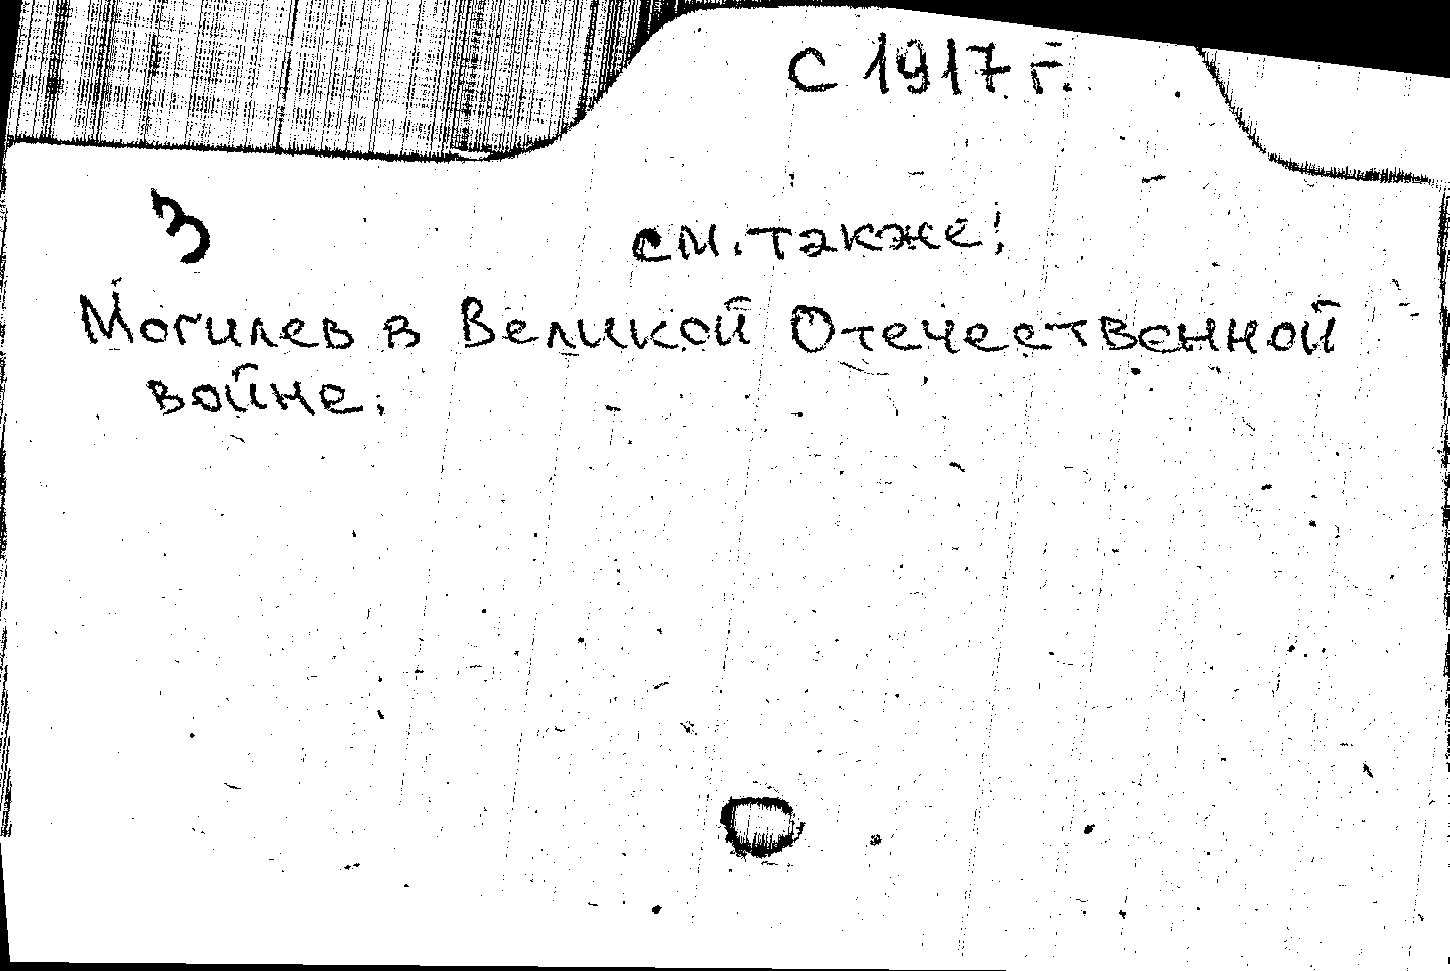 с 1917 г.
3
см. также:
Могилев в Великой Отечественной
войне.